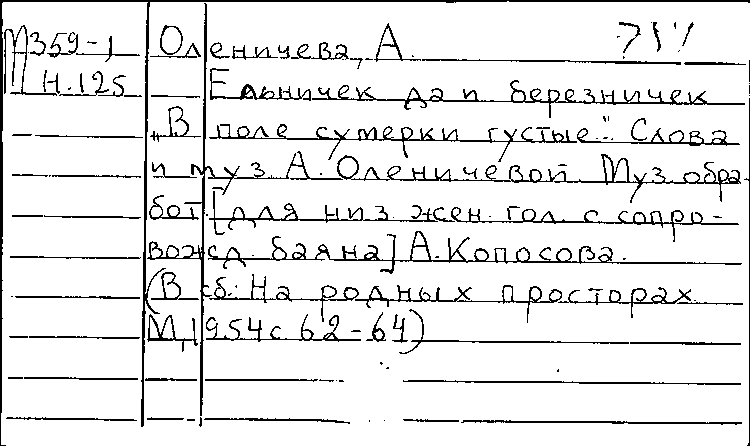 М359-1 Оленичева, А.
Н.125 Ельничек да и березничек
„В поле сумерки густые". Слова
и муз. А. Оленичевой. Муз. обра-
бот. [для низ. жен. гол. с сопро-
вожд. баяна] А. Копосова.
(В сб.: На родных просторах
М., 1954 с 62-64)